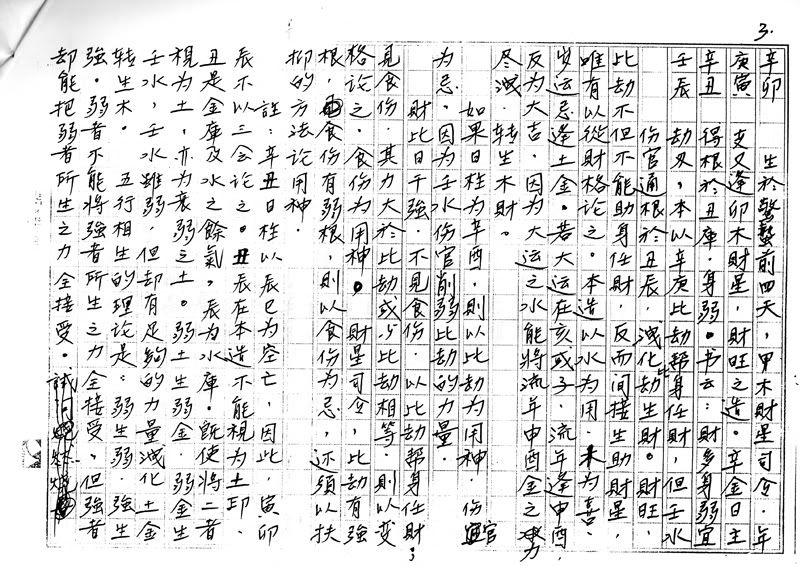 3.
辛卯　　生於驚蟄前四天，甲木財星司令．年
庚寅　支又逢卯木財星．財旺之造。辛金日主
辛丑　得根於丑庫．身弱。书云：財多身弱宜
壬辰　劫刄，本以辛庚比劫帮身任財，但壬水
傷官通根於丑辰．洩化比劫生財。財旺．
此劫不但不能助身任財．反而间接生助財星，
唯有以從財格論之。本造以水为用．木为喜．
岁运忌逢土金。若大运在亥或子．流年逢申酉
反为大吉．因为大运之水能將流年申酉金之力
冬洩．转生木財。
如果日柱为辛酉．則以此劫为用神．伤官
为忌．因为壬水伤官削弱比劫的力量．
財比日干強．不見食伤．以比劫帮身任財；
見食伤．其力大於此劫或与比劫相等．則以变
格論之．食伤为用神。財星司令，比劫有強
根，食伤有弱根，則以食伤为忌，还須以扶
抑的方法论用神．
註：辛丑日柱以辰巳为空亡，因此，寅卯
辰不以三会论之。丑辰在本造不能視为土印．
丑是金庫及水之餘氣，辰为水庫．既使將二者
視为土，亦为衰弱之土。弱土生弱金．弱金生
壬水，壬水雖弱．但却有足夠的力量洩化土金
转生木．五行相生的理论是：弱生弱．強生
強．弱者不能將強者所生之力全接受，但強者
却能把弱者所生之力全接受．